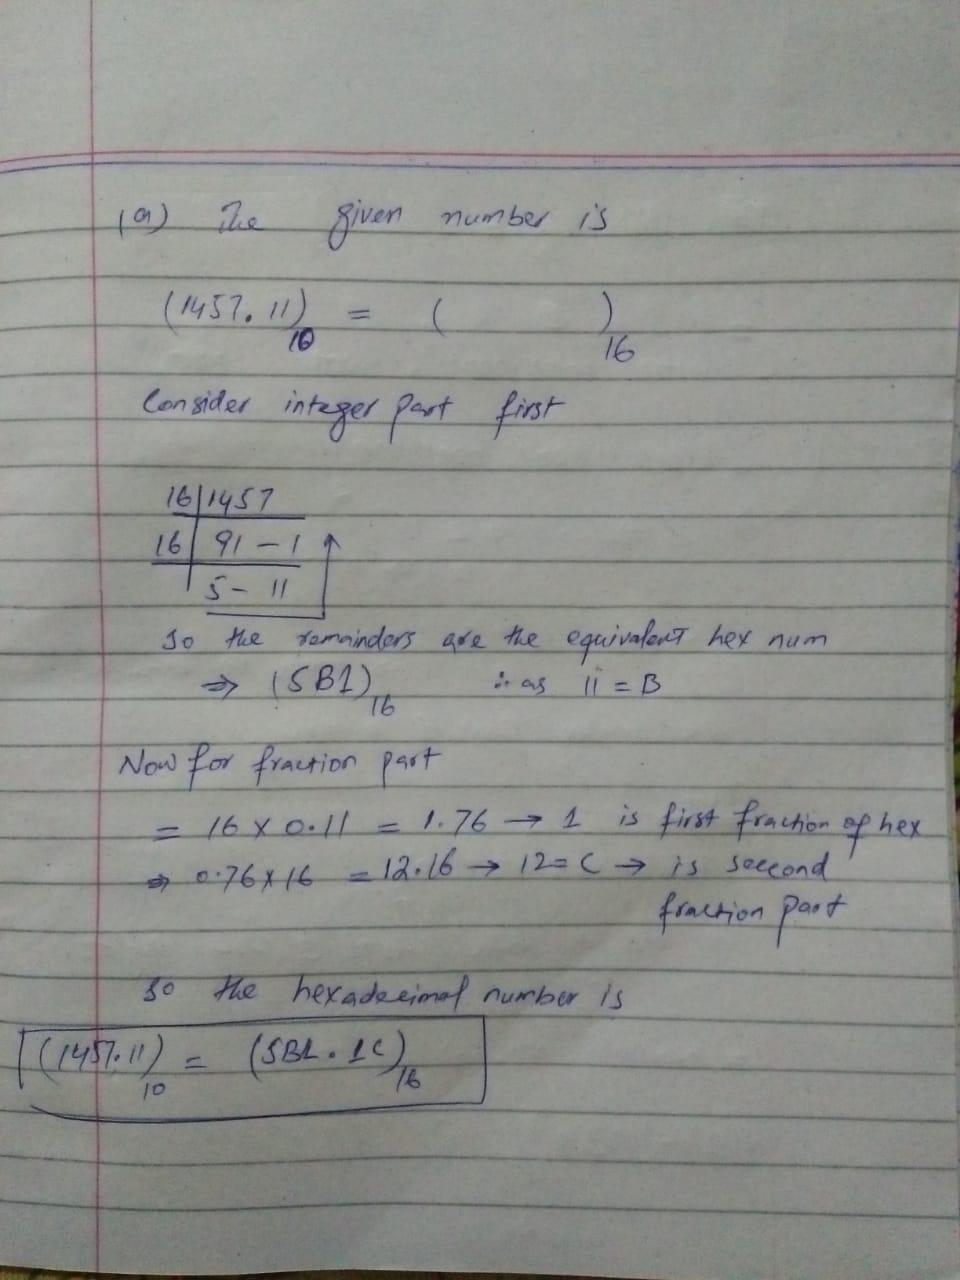 (a) The given number is
(1457.11)₁₀ = ( )₁₆
Consider integer part first
16 | 1457
16 | 91 - 1
5 - 11
So the remainders are the equivalent hex num
⇒ (5B1)₁₆ ∴ as 11 = B
Now for fraction part
= 16 X 0.11 = 1.76 → 1 is first fraction of hex
⇒ 0.76 X 16 = 12.16 → 12 = C → is second
fraction part
so the hexadecimal number is
(1457.11)₁₀ = (5B1.1C)₁₆